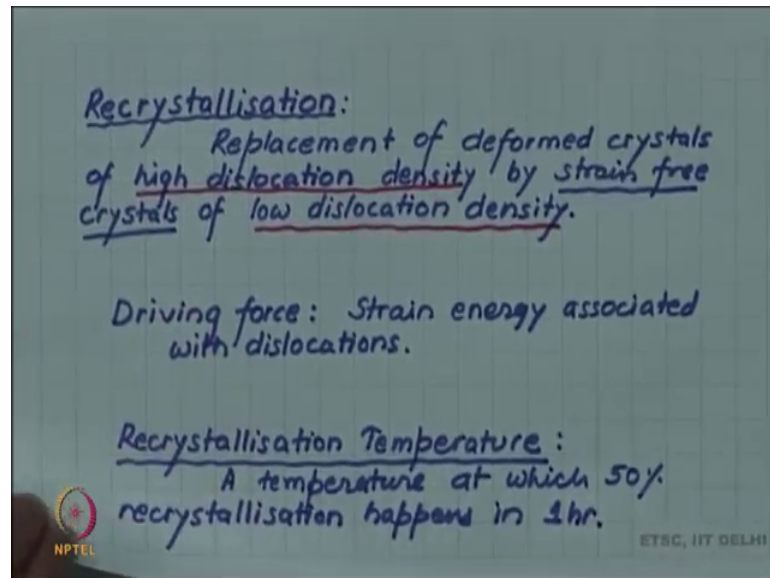 Recrystallisation:
Replacement of deformed crystals
of high dislocation density by strain free
crystals of low dislocation density.
Driving force: Strain energy associated
with dislocations.
Recrystallisation Temperature:
A temperature at which 50%
recrystallisation happens in 1hr.
NPTEL
ETSC, IIT DELHI